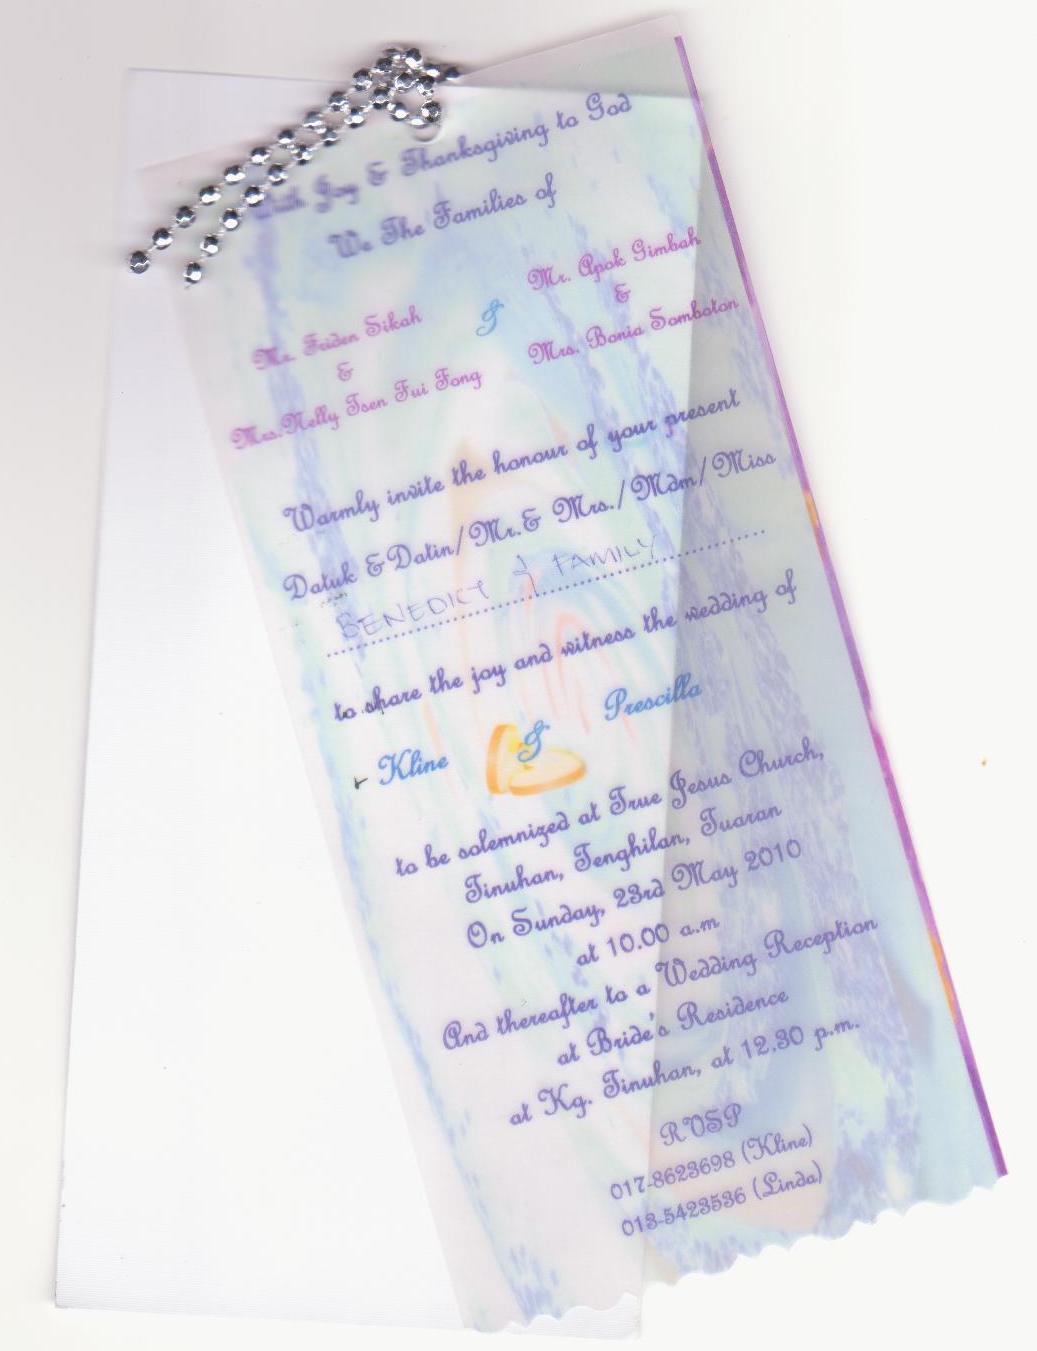 With Joy & Thanksgiving to God
We The Families of
Mr. Friden Sikah
&
Mrs. Nelly Tsen Fui Fong
&
Mr. Apok Gimbah
&
Mrs. Bonia Somboton
Warmly invite the honour of your present
Datuk & Datin/Mr. & Mrs./Mdm/Miss
BENEDICT & FAMILY
to share the joy and witness the wedding of
Kline & Prescilla
to be solemnized at True Jesus Church,
Tinuhan, Tenghilan, Tuaran
On Sunday, 23rd May 2010
at 10.00 a.m
And thereafter to a Wedding Reception
at Bride's Residence
at Kg. Tinuhan, at 12.30 p.m.
RVSP
017-8623698 (Kline)
013-5423536 (Linda)